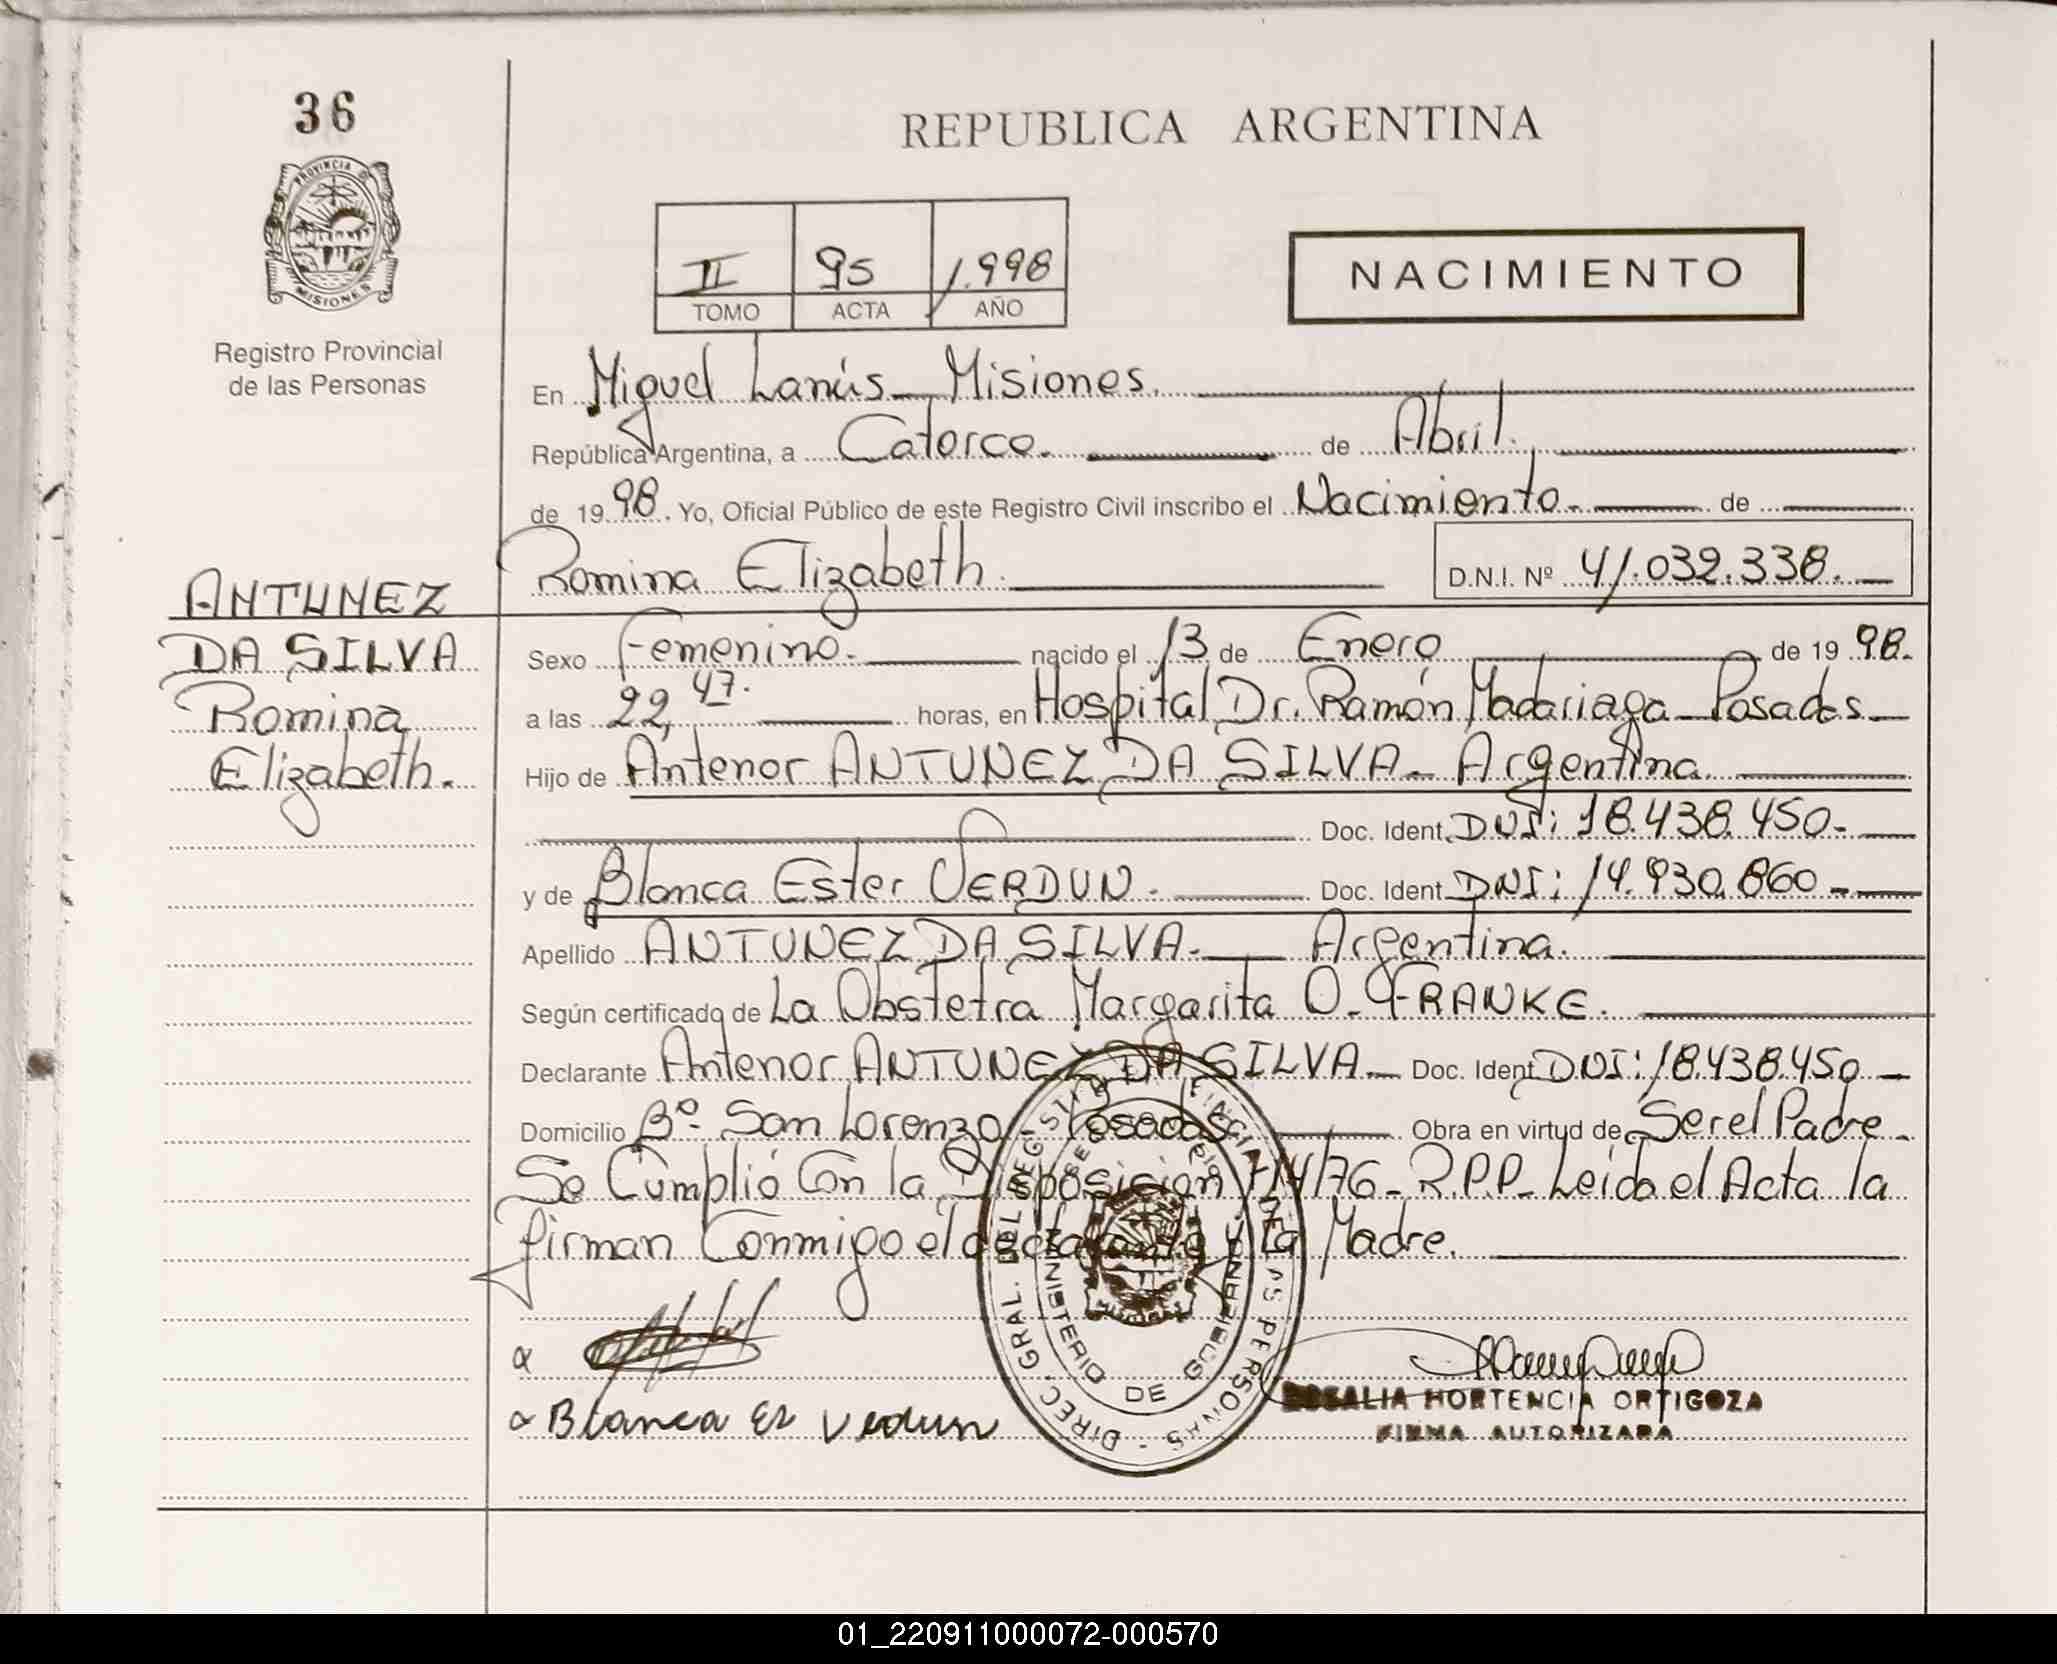 36
REPUBLICA ARGENTINA
PROVINCIA D
MISIONES
Registro Provincial
de las Personas
II 95 1.998
TOMO ACTA AÑO
NACIMIENTO
En Miguel Lanús - Misiones.
República Argentina, a Catorce. de Abril.
de 1998. Yo, Oficial Público de este Registro Civil inscribo el Nacimiento. de
Romina Elizabeth. D.N.I. Nº 41.032.338.
ANTUNEZ
DA SILVA
Romina
Elizabeth.
Sexo Femenino. nacido el 13 de Enero de 1998.
a las 22,47. horas, en Hospital Dr. Ramón Madariaga - Posadas -
Hijo de Antenor ANTUNEZ DA SILVA - Argentina
Doc. Ident. DNI: 18.438.450-
y de Blanca Ester VERDUN. Doc. Ident. DNI: 14.930.860-
Apellido ANTUNEZ DA SILVA. Argentina.
Según certificado de La Obstetra Margarita O. FRANKE.
Declarante Antenor ANTUNEZ DA SILVA - Doc. Ident. DNI: 18.438.450 -
Domicilio Bº San Lorenzo - Posadas Obra en virtud de Ser el Padre.
Se Cumplió Con la Disposición /76 - R.P.P - Leída el Acta la
firman Conmigo el declarante y La Madre.
Blanca Es Vedun
DIREC. GRAL. DEL REGISTRO DE LAS PERSONAS -
MINISTERIO DE GOBIERNO
ROSALIA HORTENCIA ORTIGOZA
FIRMA AUTORIZADA
01_220911000072-000570